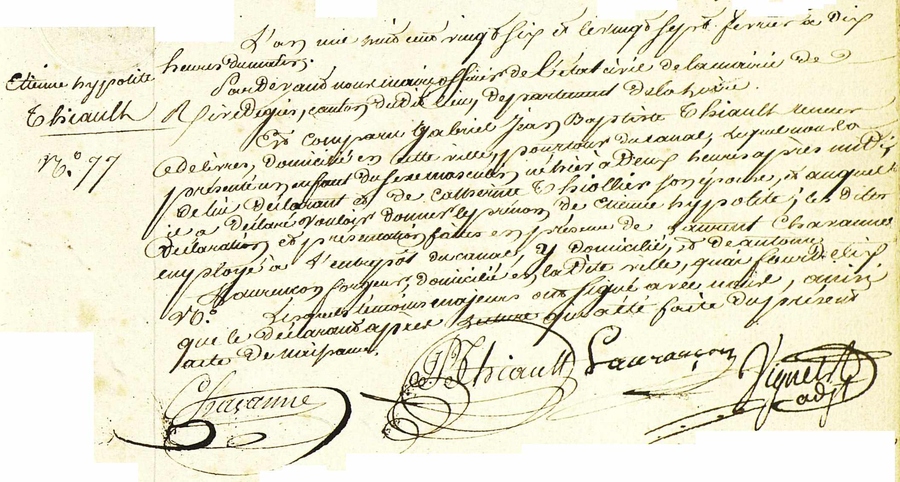 Etienne hypolite
Thiault
N.° 77
L'an mil huit cent vingt six et le vingt sept fevrier à dix
heures du matin;
Pardevant nous maire officier de l'état civil de la mairie de
Rive de gier, canton du dit lieu, département de la Loire.
Est comparu Gabriel Jean Baptiste Thiault teneur
de livres, domicilié en cette ville, pourtour du canal, lequel nous a
présenté un enfant du sexe masculin, né hier à Deux heures après midi,
de lui déclarant et de Catherine Thiollier son épouse, et auquel
il a déclaré vouloir donner le prénom de Etienne hypolité; les dites
déclaration et présentation faites en présence de Laurent Chavanne
employé à l'entrepôt du canal, y domicilié, et de antoine
Laurençon, domicilié en la dite ville, quai
N.° Lesquels témoins majeurs ont signé avec nous, ainsi
que le déclarant après lecture qu'a été faite du présent
acte de naissance.
Chavanne
JB Thiault
Laurançon
Vignet
adj.t